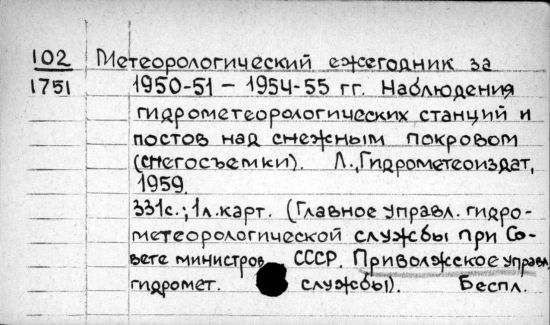 102 Метеорологический ежегодник за
1751 1950-51 – 1954-55 гг. Наблюдения
гидрометеорологических станций и
постов над снежным покровом
(снегосъемки). Л., Гидрометеоиздат,
1959.
331с.; 1л.карт. (Главное управл. гидро-
метеорологической службы при Со-
вете министров СССР. Приволжское управл.
гидромет. службы). Беспл.